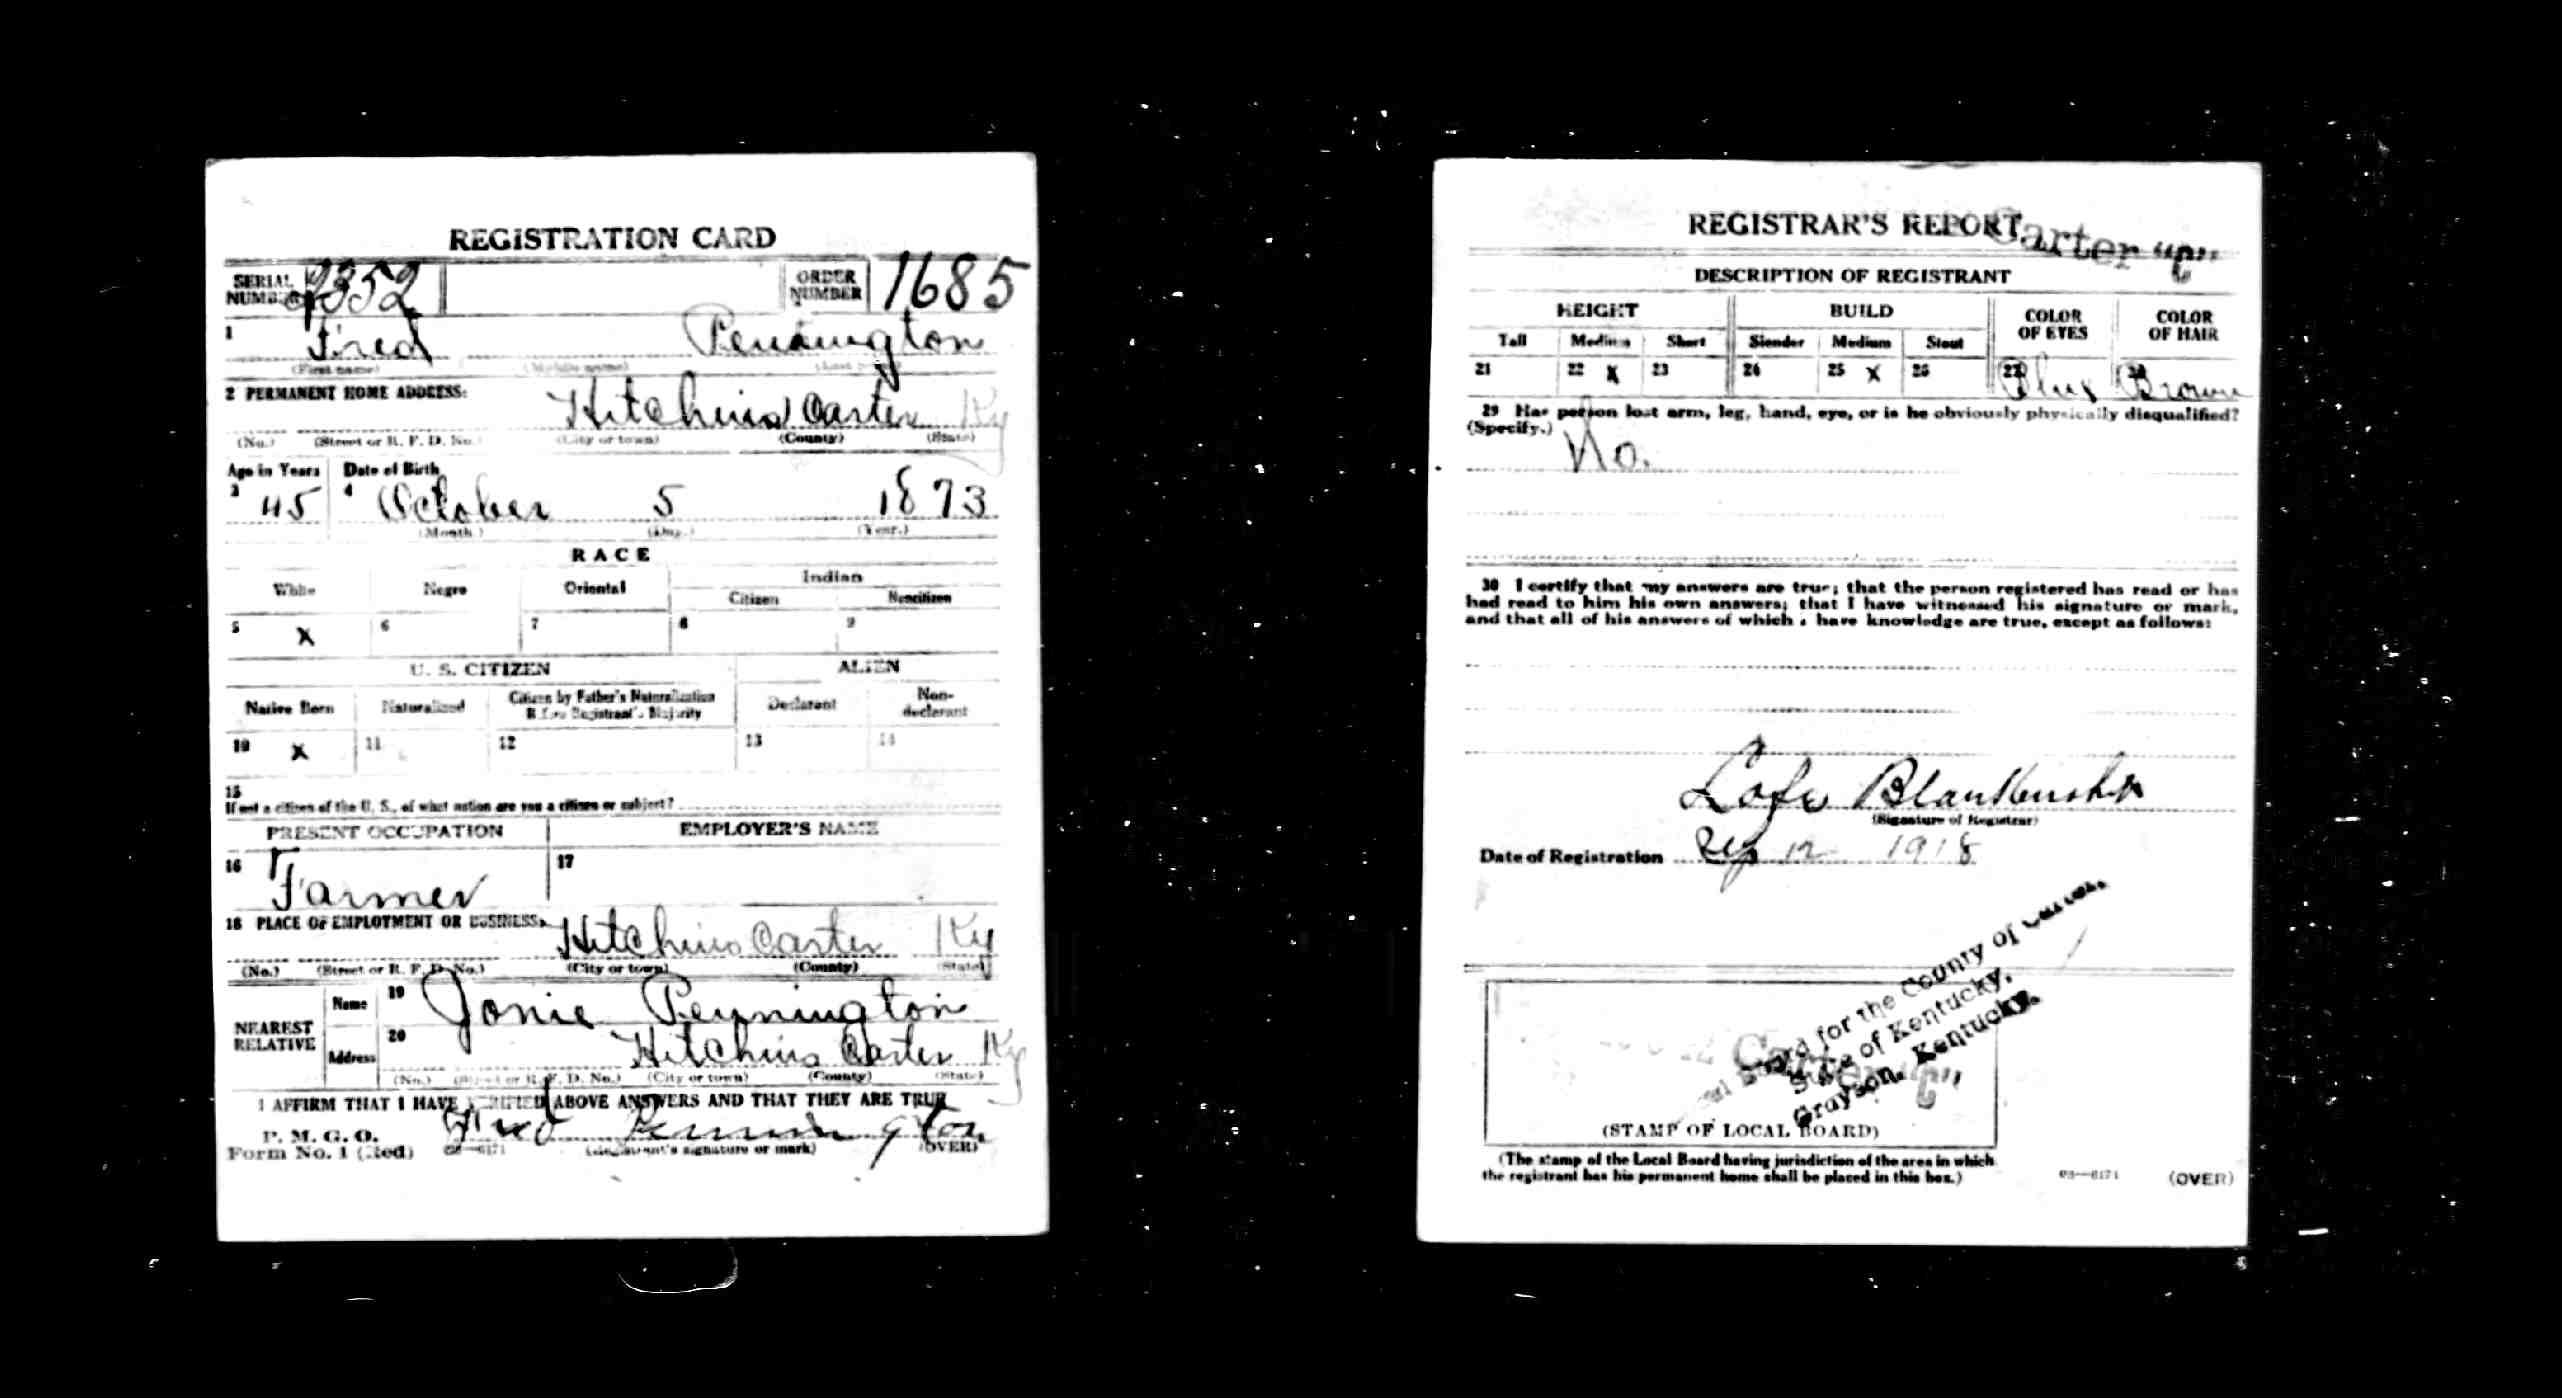 REGISTRATION CARD
SERIAL NUMBER 2352 ORDER NUMBER 1685
1 Fred Pennington
(First name) (Middle name) (Last name)
2 PERMANENT HOME ADDRESS:
Hitchins Carter Ky
(No.) (Street or R. F. D. No.) (City or town) (County) (State)
Age in Years Date of Birth
3 45 4 October 5 1873
(Month.) (Day.) (Year.)
RACE
White Negro Oriental Indian
Citizen Noncitizen
5 X 6 7 8 9
U. S. CITIZEN ALIEN
Native Born Naturalized Citizen by Father's Naturalization Before Registrant's Majority Declarant Non-declarant
10 X 11 12 13 14
15
If not a citizen of the U. S., of what nation are you a citizen or subject?
PRESENT OCCUPATION EMPLOYER'S NAME
16 Farmer 17
18 PLACE OF EMPLOYMENT OR BUSINESS:
Hitchins Carter Ky
(No.) (Street or R. F. D. No.) (City or town) (County) (State)
NEAREST RELATIVE Name 19 Jonie Pennington
Address 20 Hitchins Carter Ky
(No.) (Street or R. F. D. No.) (City or town) (County) (State)
I AFFIRM THAT I HAVE VERIFIED ABOVE ANSWERS AND THAT THEY ARE TRUE
P. M. G. O.
Form No. 1 (Red) 03—6171 Fred Pennington
(Registrant's signature or mark) (OVER)
REGISTRAR'S REPORT
Carter "C"
DESCRIPTION OF REGISTRANT
HEIGHT BUILD COLOR OF EYES COLOR OF HAIR
Tall Medium Short Slender Medium Stout
21 22 X 23 24 25 X 26 27 Blue 28 Brown
29 Has person lost arm, leg, hand, eye, or is he obviously physically disqualified?
(Specify.) No.
30 I certify that my answers are true; that the person registered has read or has
had read to him his own answers; that I have witnessed his signature or mark,
and that all of his answers of which I have knowledge are true, except as follows:
Lafe Blankenship
(Signature of Registrar)
Date of Registration Sep 12 1918
Local Board for the County of Carter,
State of Kentucky,
Grayson, Kentucky.
Carter "C"
(STAMP OF LOCAL BOARD)
(The stamp of the Local Board having jurisdiction of the area in which
the registrant has his permanent home shall be placed in this box.)
03—6171 (OVER)